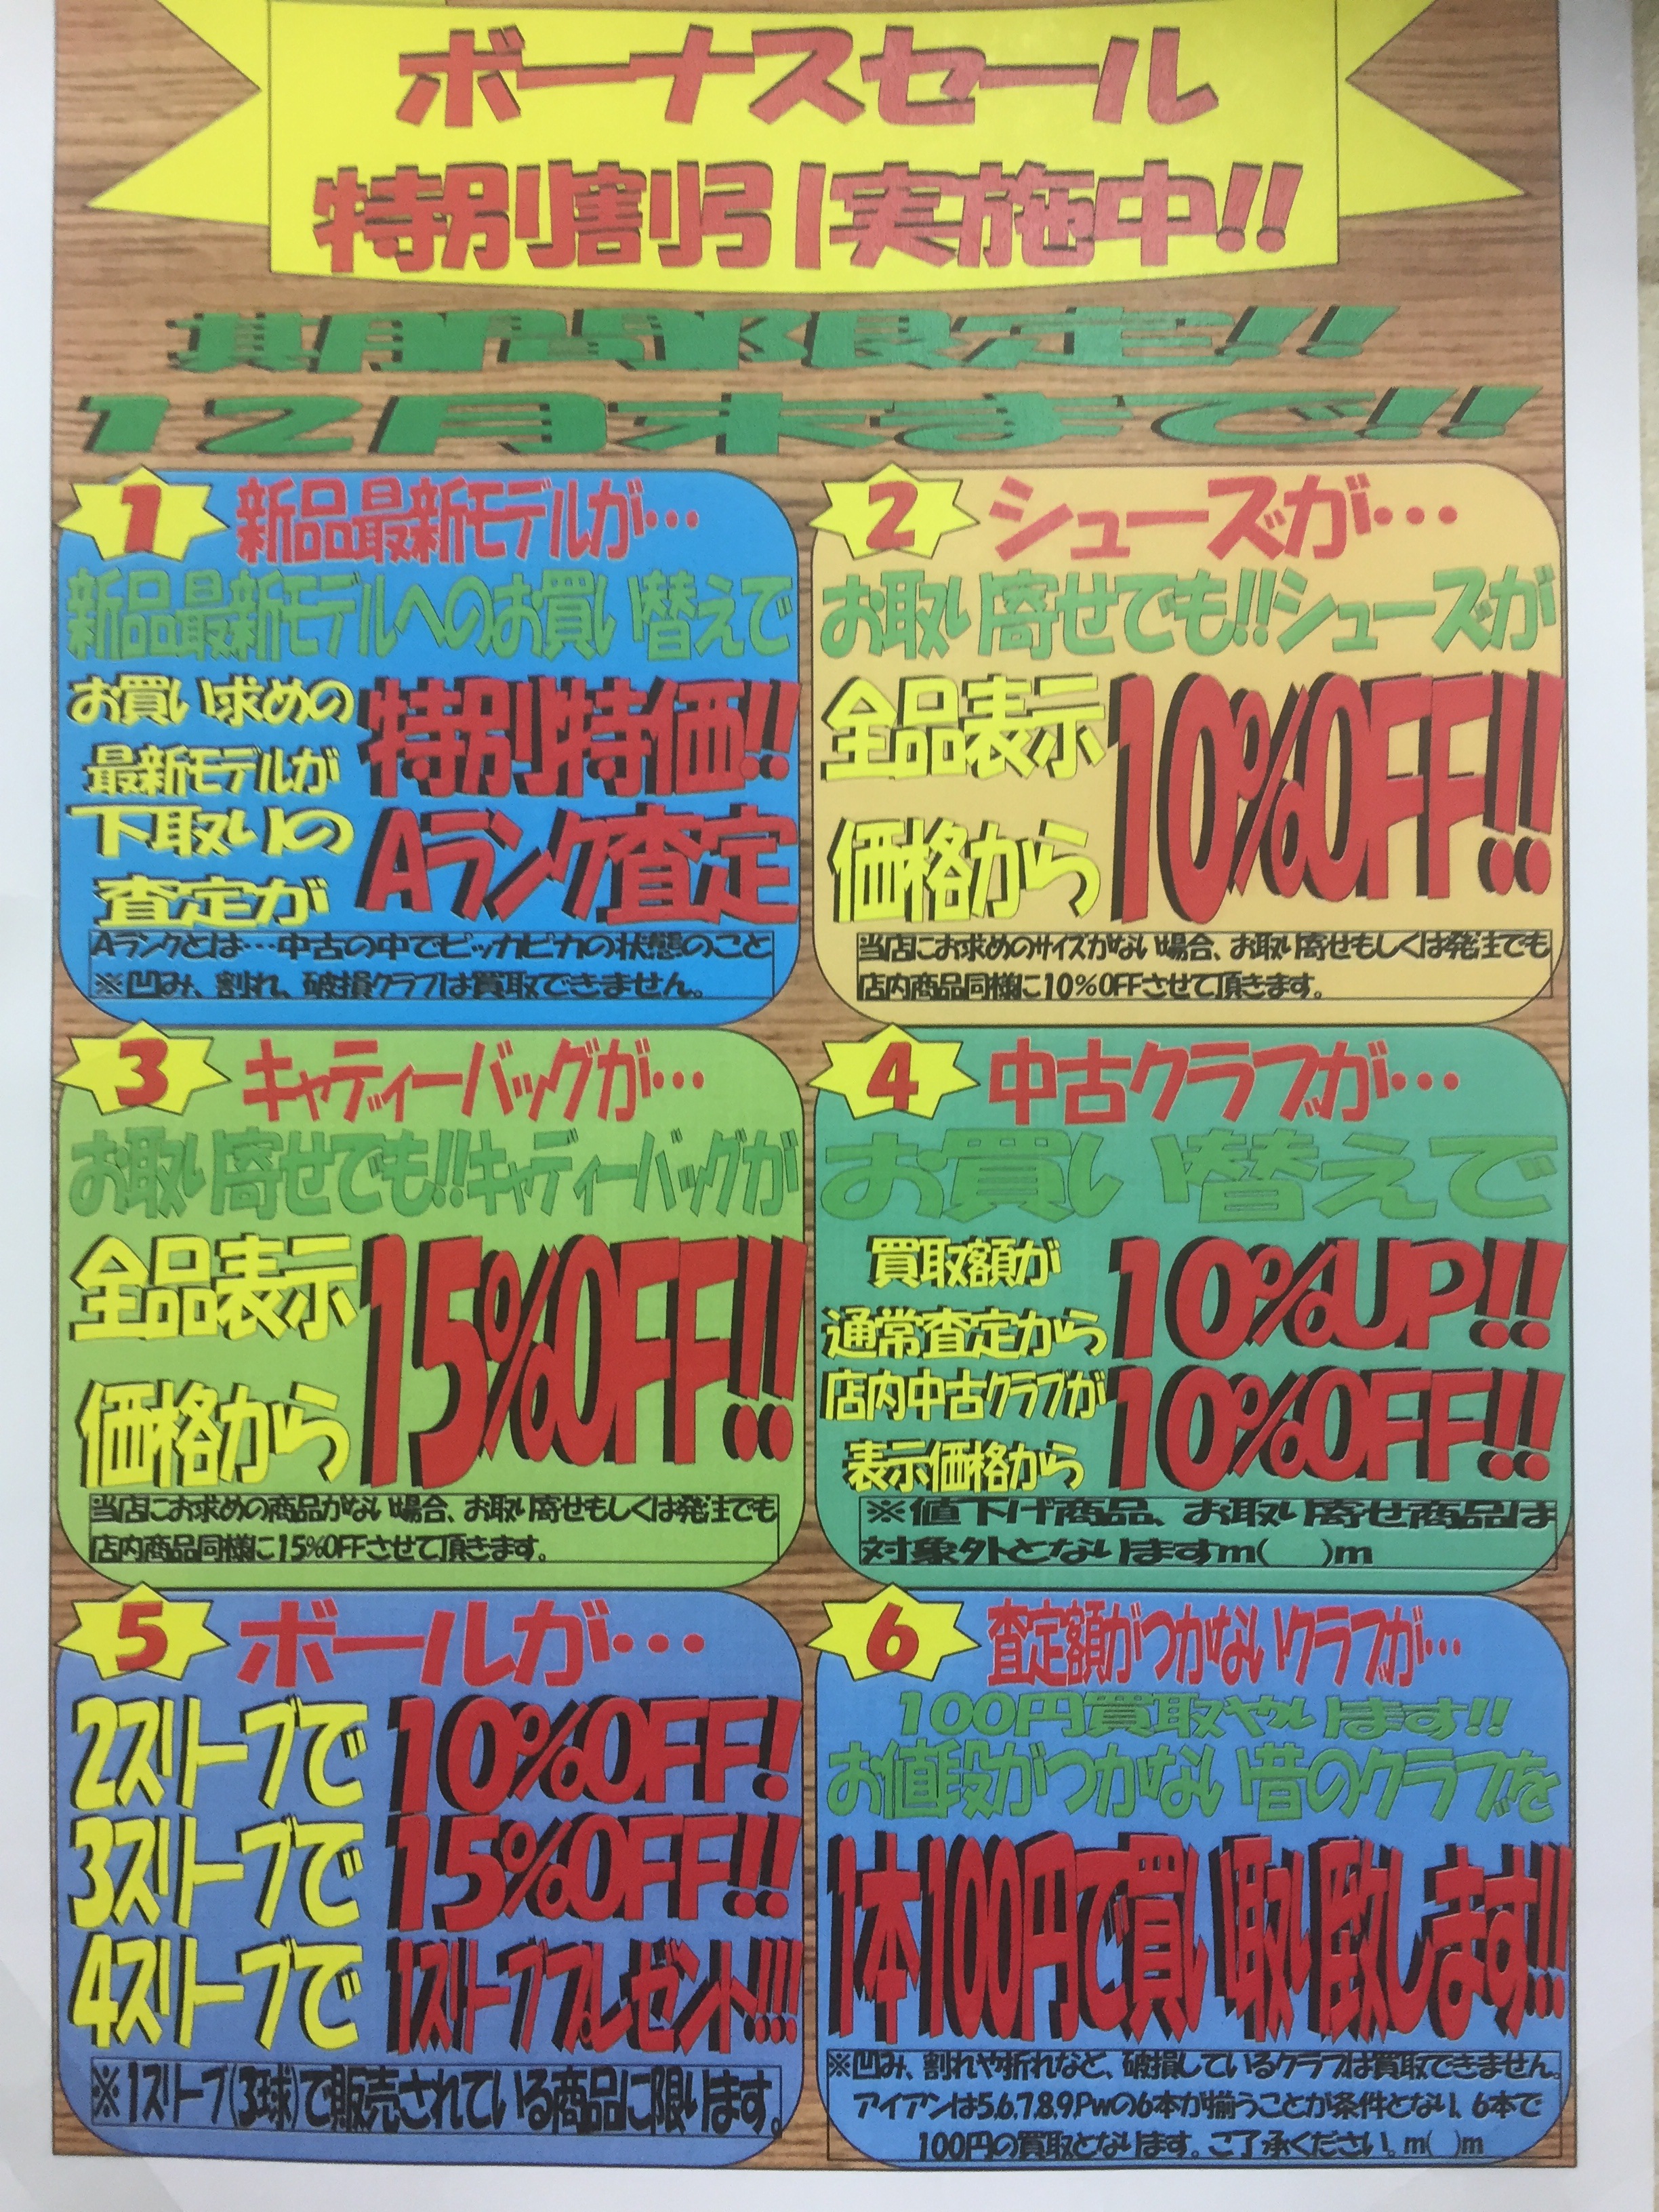 ボーナスセール
特別割引実施中!!
期間限定!!
12月末まで!!
1 新品最新モデルが…
新品最新モデルへのお買い替えで
お買い求めの
最新モデルが
特別特価!!
下取りの
査定が
Aランク査定
Aランクとは…中古の中でピッカピカの状態のこと
※凹み、割れ、破損クラブは買取できません。
2 シューズが…
お取り寄せでも!!シューズが
全品表示
価格から
10%OFF!!
当店にお求めのサイズがない場合、お取り寄せもしくは発注でも
店内商品同様に10%OFFさせて頂きます。
3 キャディーバッグが…
お取り寄せでも!!キャディーバッグが
全品表示
価格から
15%OFF!!
当店にお求めの商品がない場合、お取り寄せもしくは発注でも
店内商品同様に15%OFFさせて頂きます。
4 中古クラブが…
お買い替えで
買取額が
通常査定から
10%UP!!
店内中古クラブが
表示価格から
10%OFF!!
※値下げ商品、お取り寄せ商品は
対象外となりますm(__)m
5 ボールが…
2スリーブで 10%OFF!
3スリーブで 15%OFF!!
4スリーブで 1スリーブプレゼント!!!
※1スリーブ(3球)で販売されている商品に限ります。
6 査定額がつかないクラブが…
100円買取やります!!
お値段がつかない昔のクラブを
1本100円で買い取り致します!!!
※凹み、割れや折れなど、破損しているクラブは買取できません。
アイアンは5,6,7,8,9,Pwの6本が揃うことが条件となり、6本で
100円の買取となります。ご了承ください。m(__)m